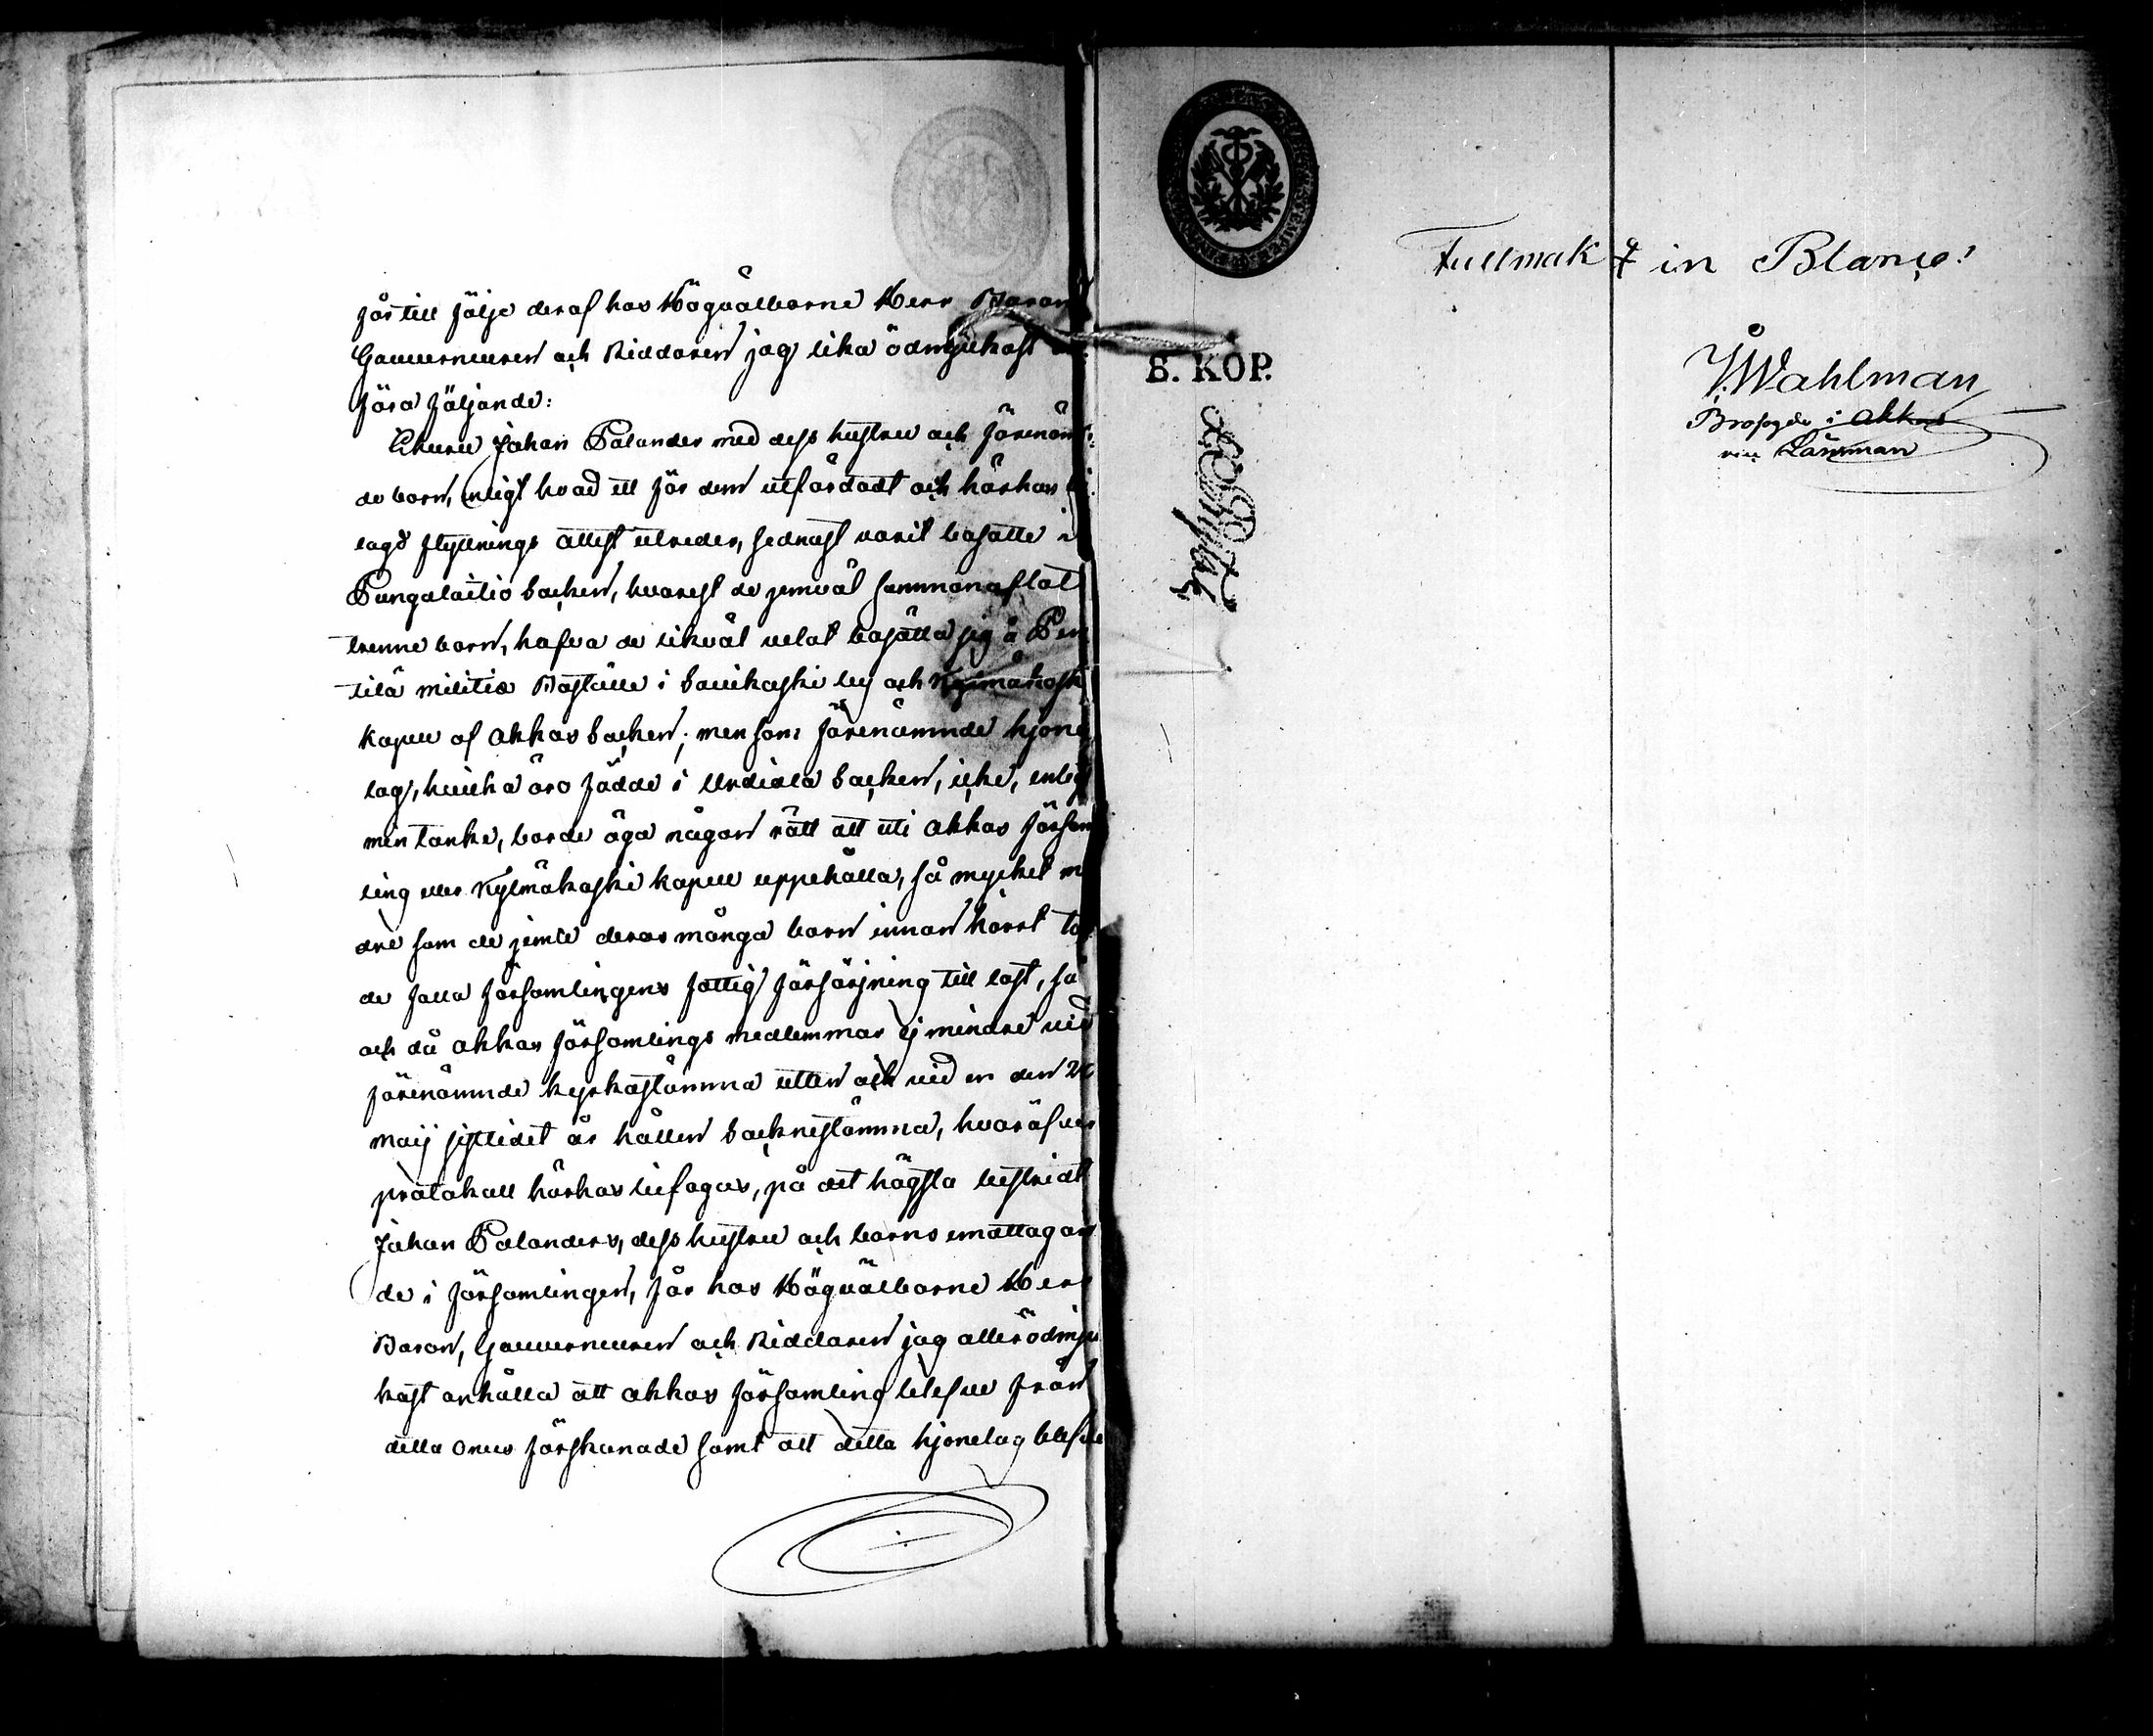 får till följe deraf hos Högvälborne Herr Baron
Gouverneuren och Riddaren jag lika ödmjukast
föra följande:
Ehuru Johan Palander med dess hustru och förenämn
de barn, enligt hvad ett för dem utfärdadt och härhos
lagd flyttnings attest utreder, sednast varit bosatte i
Pungalaitio Socken, hvarest de jemväl sammanaflat
trenne barn, hafva de likväl velat bosätta sig å Pen
tilä militie Boställe i Savikoski by och Kylmäkoski
kapell af Akkas Socken; men som förenämnde hjone
lag, hvilka äro födde i Urdiala Socken, icke, enligt
min tanke, borde äga någon rätt att uti Akkas församl
ling eller Kylmäkoski kapell uppehålla, så mycket min
dre som de jemte deras många barn innan kort
de falla församlingens fattig försörjning till last, så
och då Akkas församlings medlemmar ej mindre vid
förenämnde kyrkostämma utan och vid en den 26
Maij sistlidet år hållen Socknestämma, hvaröfver
protokoll härhos bifogas, på det högsta bestridt
Johan Palanders, dess hustru och barns emottagan
de i församlingen, får hos Högvälborne Herr
Baron, Gouverneuren och Riddaren jag allerödmju
kast anhålla att Akkas församling blefve från
detta onus förskonade samt att detta hjonelag blefve
8. KOP.
Fullmakt in Blanco!
J. Wahlman
Brofogde i Akkas
vice Länsman